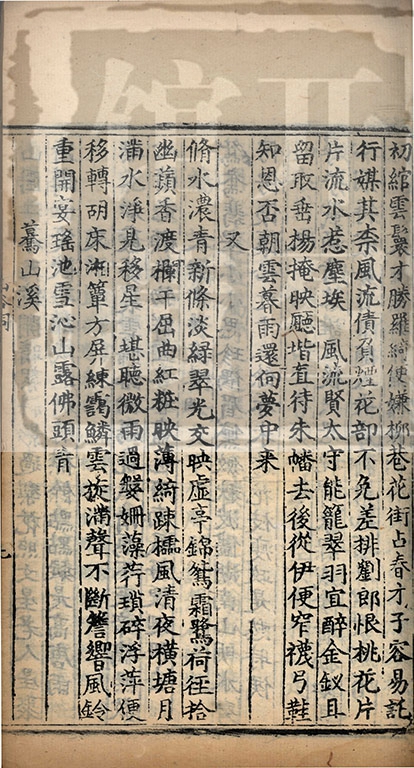 初綰雲鬟才勝羅綺便嫌柳巷花街占春才子容易託
行媒其柰風流債負煙花部不免差排劉郎恨桃花片
片流水惹塵埃 風流賢太守能籠翠羽宜醉金釵且
留取垂揚掩映聽堦直待朱幡去後從伊便窄襪弓鞋
知恩否朝雲暮雨還向夢中来
又
脩水濃青新條淡緑翠光交映虚亭錦鴛霜鷺荷徑拾
幽蘋香渡欄干屈曲紅粧映薄綺踈櫺風清夜横塘月
滿水淨見移星 堪聽微雨過㛹姗藻荇瑣碎浮萍便
移轉胡床湘簟方屏練靄鱗雲旋滿聲不斷簷響風鈴
重開宴瑤池雪沁山露佛頭青
驀山溪